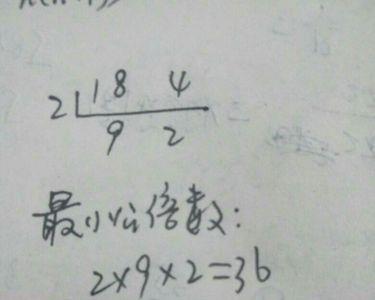 2 18 4
9 2
最小公倍数:
2×9×2=36